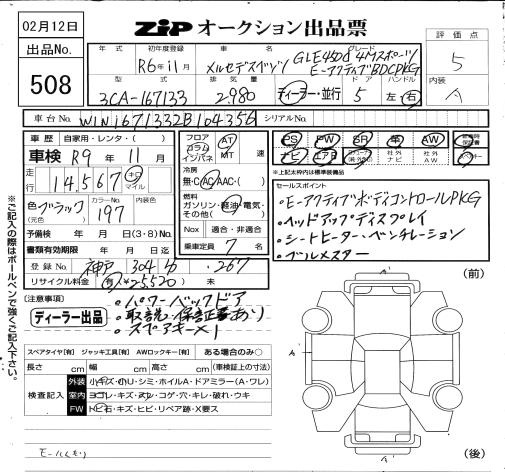 02月12日
ZIP オークション出品票
出品No.
508
評価点
5
内装
A
年式 初年度登録 車名 グレード
R6年11月 メルセデスベンツ GLE450d 4Mスポーツ
E-アクティブBDCPKG
型式 排気量 ドア ハンドル
3CA-167133 2,980 ディーラー・並行 5 左・右
車台No. W1N1671332B104356 シリアルNo.
車歴 自家用・レンタ・( )
車検 R9年 11月
走行 14,567 キロ マイル
色 ブラック (元色) カラーNo. 197 内装色
予備検 年 月 日(3・8)No.
書類有効期限 年 月 日迄
登録No. 神戸 304 ・267
リサイクル料金 有 ¥25,520 未
フロア コラム インパネ AT MT 速
冷房 無・C・AC・AAC・( )
燃料 ガソリン・軽油・電気・その他( )
Nox 適合・非適合
乗車定員 7名
PS PW SR 革 AW
ナビ エアB 社外ナビ 社外AW
※上記太枠内は標準装備品
セールスポイント
・E-アクティブボディコントロールPKG
・ヘッドアップディスプレイ
・シートヒーター・ベンチレーション
・ブルメスター
(注意事項)
ディーラー出品
・パワーバックドア
・取説・保証書あり
・スペアキー×1
スペアタイヤ[有] ジャッキ工具[有] AWロックキー[有] ある場合のみ○
長さ cm 幅 cm 高さ cm (車検証上の寸法)
検査記入
外装 小キズ・小リ・シミ・ホイルA・ドアミラー(A・ワレ)
室内 ヨゴレ・キズ・スレ・コゲ・穴・キレ・破れ・ウキ
FW トビ石・キズ・ヒビ・リペア跡・X要ス
※ご記入の際はボールペンで強くご記入下さい。
(前)
(後)
A'
A'
A'